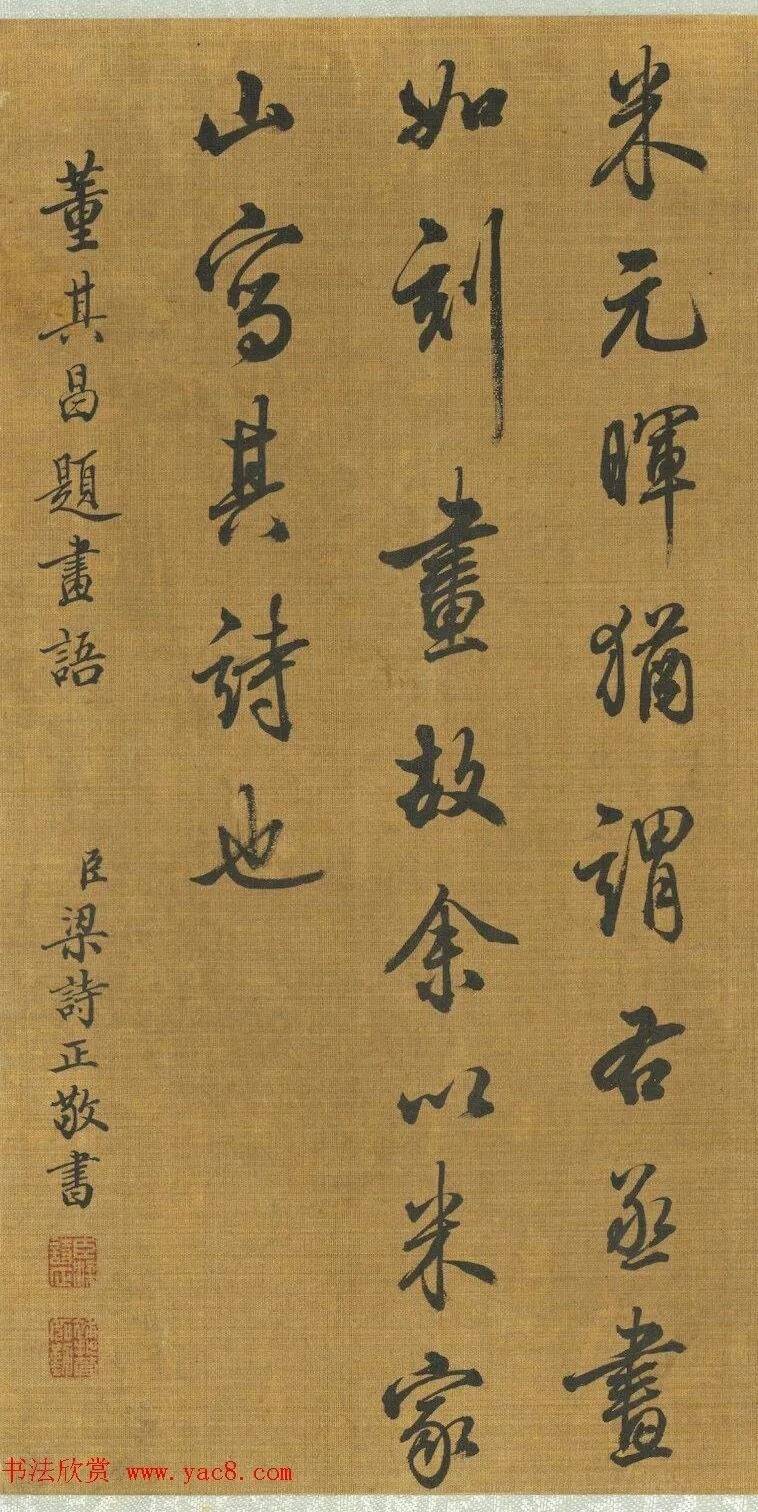 米元暉猶謂右丞畫
如刻畫故余以米家
山寫其詩也
董其昌題畫語
臣梁詩正敬書
书法欣赏 www.yac8.com